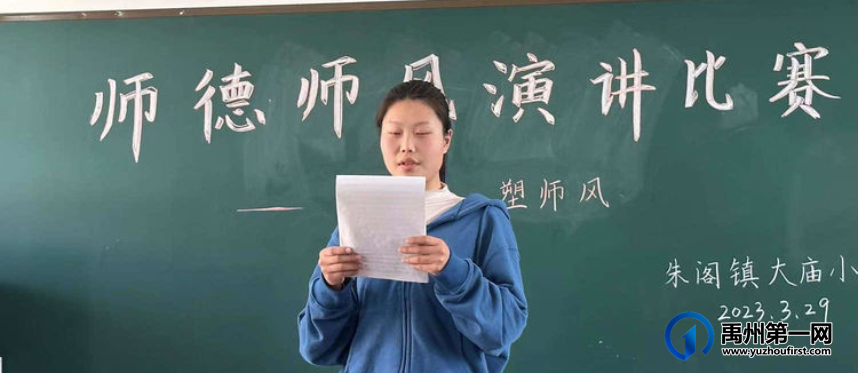 师德师风演讲比赛
——塑师风
朱阁镇大庙小
2023.3.29
禹州第一网
www.yuzhoufirst.com